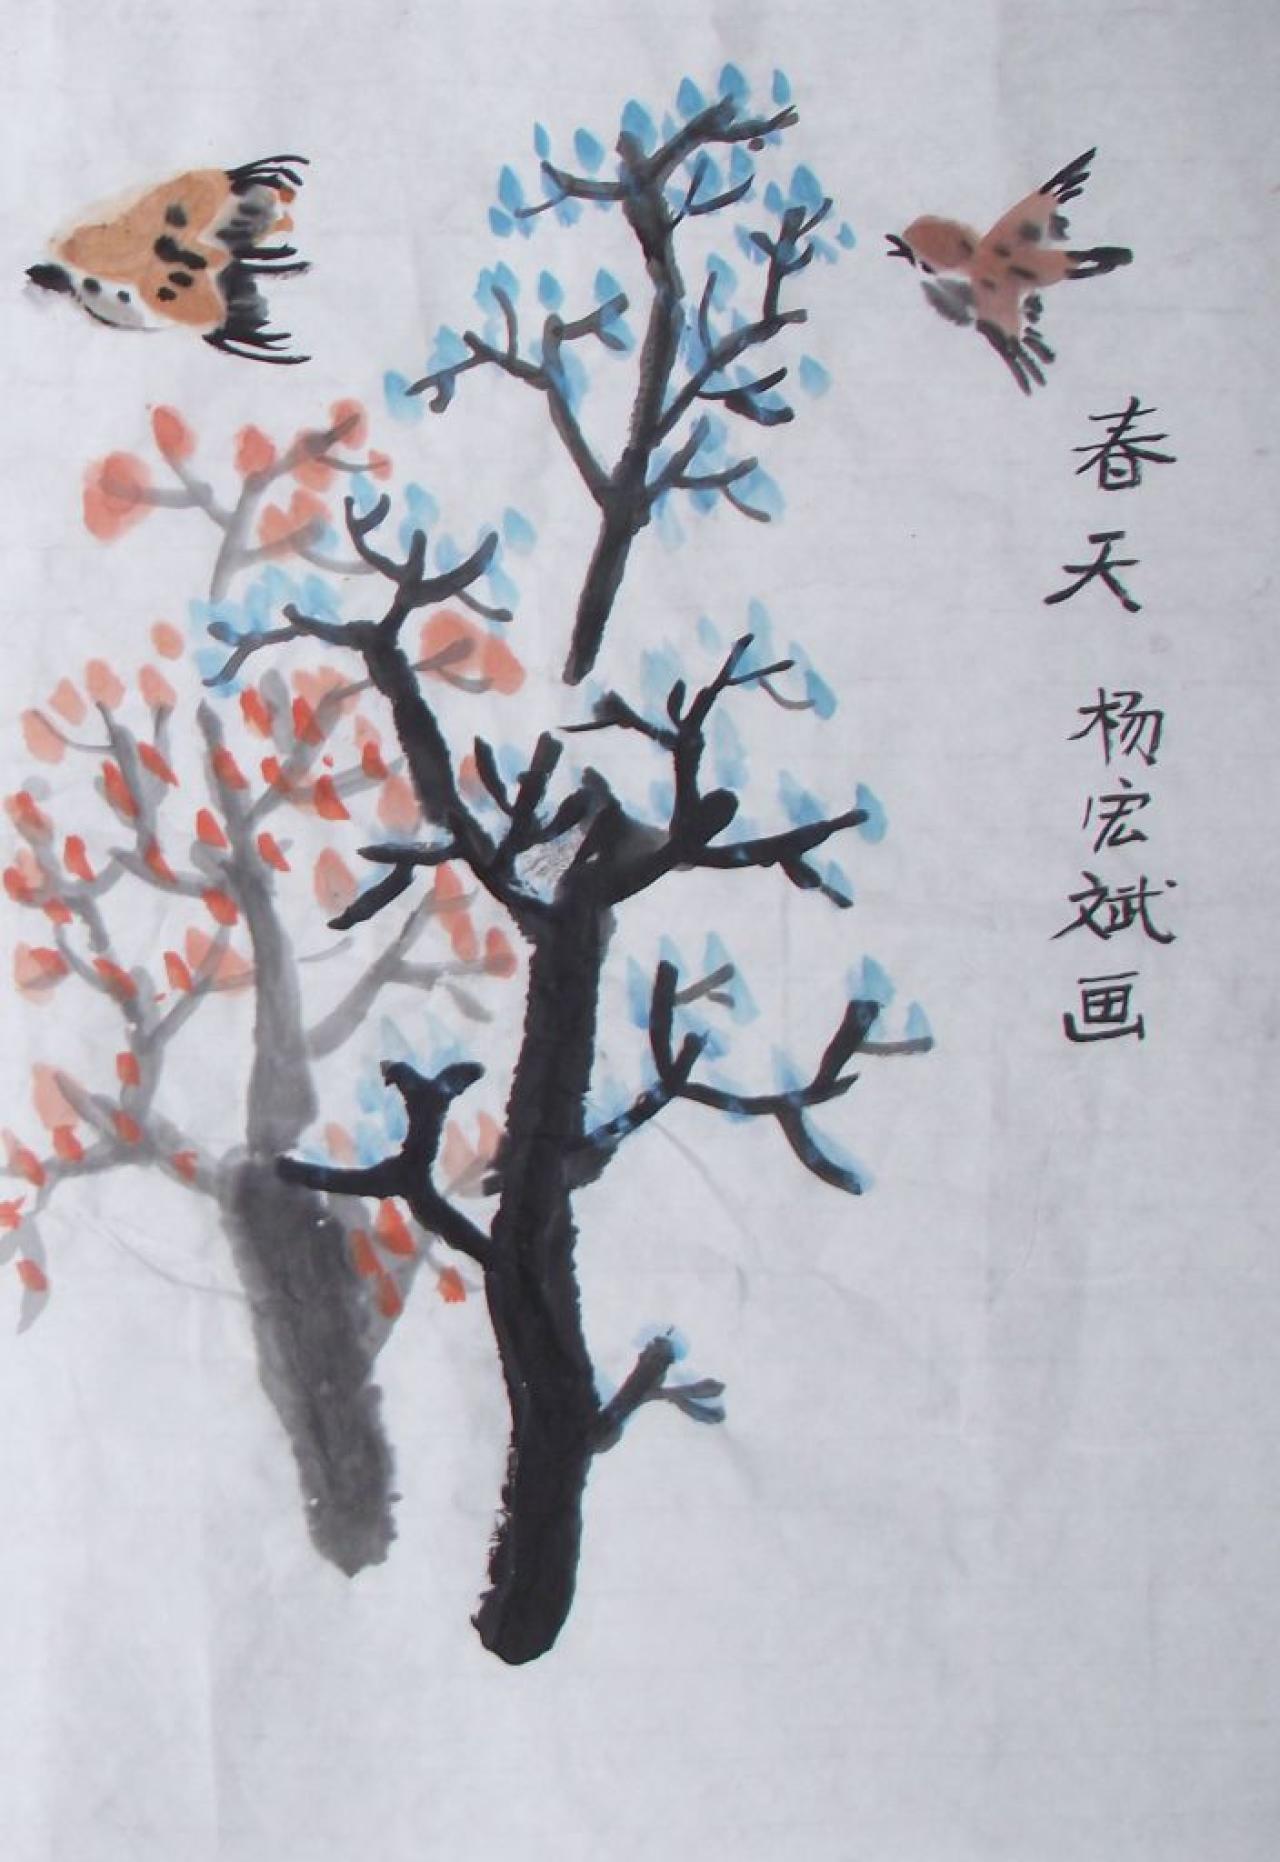 春天 杨宏斌画